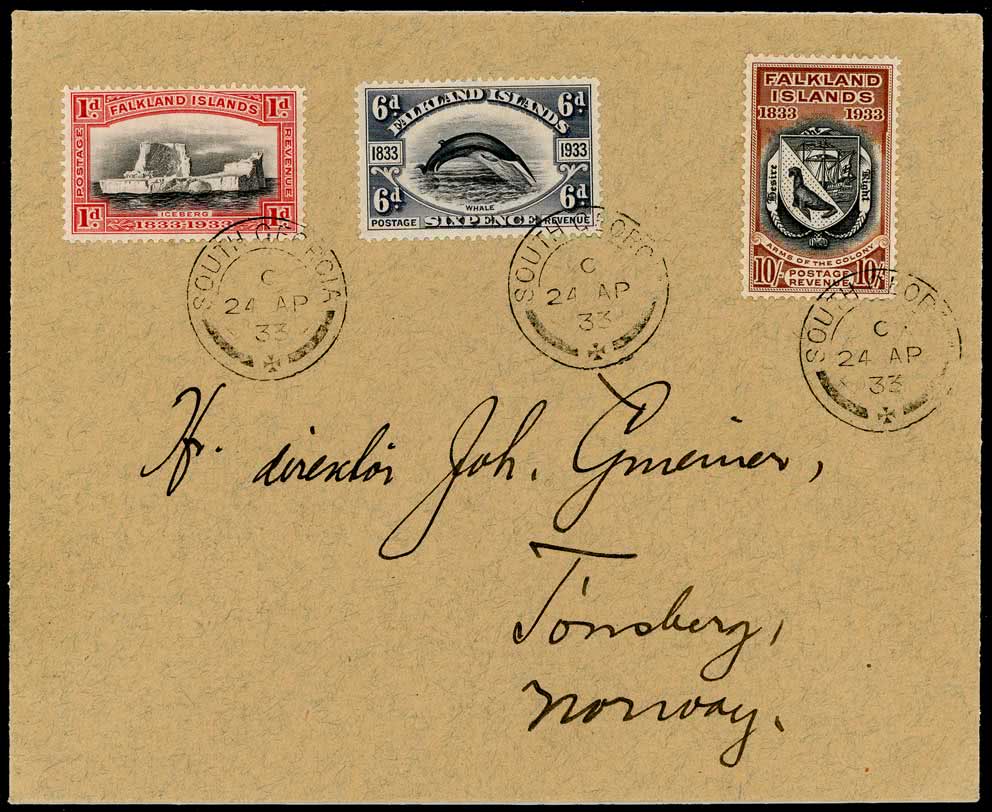 1d FALKLAND ISLANDS 1d
POSTAGE
REVENUE
ICEBERG
1d 1833-1933 1d
6d FALKLAND ISLANDS 6d
1833 1933
6d WHALE 6d
POSTAGE SIXPENCE REVENUE
FALKLAND
ISLANDS
1833 1933
Desire the Right
ARMS OF THE COLONY
10/- POSTAGE REVENUE 10/-
SOUTH GEORGIA
C
24 AP
33
SOUTH GEORG
C
24 AP
33
SOUTH GEORGIA
C
24 AP
33
Hr. direktör Joh. Gmeiner,
Tönsberg,
Norway.